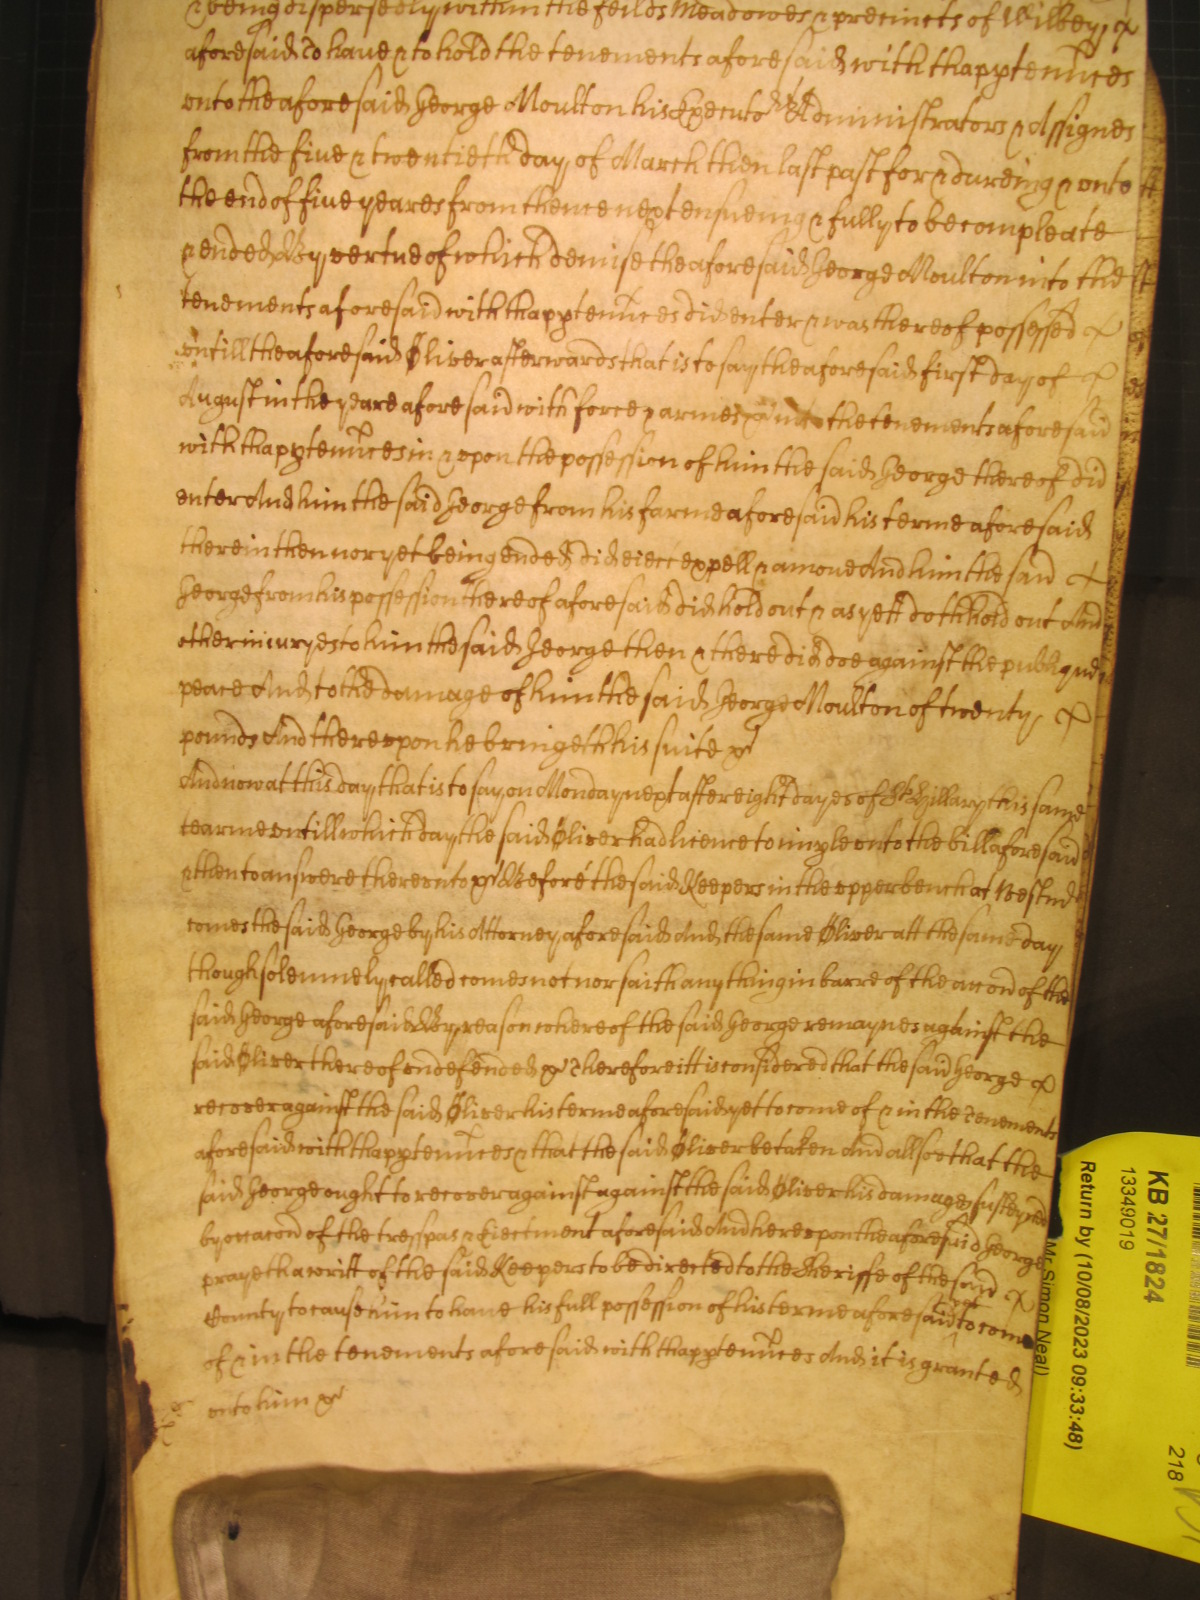 & being dispersedly within the feilds Meadowes & precincts of Wilbey &
aforesaid To have & to hold the tenements aforesaid with thapptennces
unto the aforesaid George Moulton his Executors Administrators & Assignes
from the five & twentieth day of March then last past for & dureing & unto
the end of five yeares from thence next ensueing & fully to be compleate
& ended By vertue of which demise the aforesaid George Moulton into the
tenements aforesaid with thapptennces did enter & was thereof possessed &
untill the aforesaid Oliver afterwards that is to say the aforesaid first day of &
August in the yeare aforesaid with force & armes &c into the tenements aforesaid
with thapptennces in & upon the possession of him the said George thereof did
enter And him the said George from his farme aforesaid his terme aforesaid
therein then nor yet being ended did eiect expell & amove And him the said &
George from his possession thereof aforesaid did hold out & as yett doth hold out And
other iniuryes to him the said George then & there did doe against the publique
peace And to the damage of him the said George Moulton of twenty &
pounds And thereupon he bringeth his suite &c
And now at this day that is to say on Monday next after eight dayes of St Hillary this same
tearme untill which day the said Oliver had licence to imple unto the bill aforesaid
& then to answere thereunto &c Before the said Keepers in the upper bench at Westmr
comes the said George by his Attorney aforesaid And the same Oliver att the same day
though solemnely called comes not nor saith any thing in barre of the accon of the
said George aforesaid By reason whereof the said George remaynes against the
said Oliver thereof undefended &c Therefore itt is considered that the said George &
recover against the said Oliver his terme aforesaid yet to come of & in the Tenements
aforesaid with thapptennces & that the said Oliver be taken And allsoe that the
said George ought to recover against against the said Oliver his damages susteyned
by occacon of the tresspas & Eiectment aforesaid And hereupon the aforesaid George
prayeth a writt of the said Keepers to be directed to the Sheriffe of the said &
County to cause him to have his full possession of his terme aforesaid yet to come
of & in the tenements aforesaid with thapptennces And it is granted
unto him &c
KB 27/1824
13349019
Return by (10/08/2023 09:33:48)
(Mr Simon Neal)
218